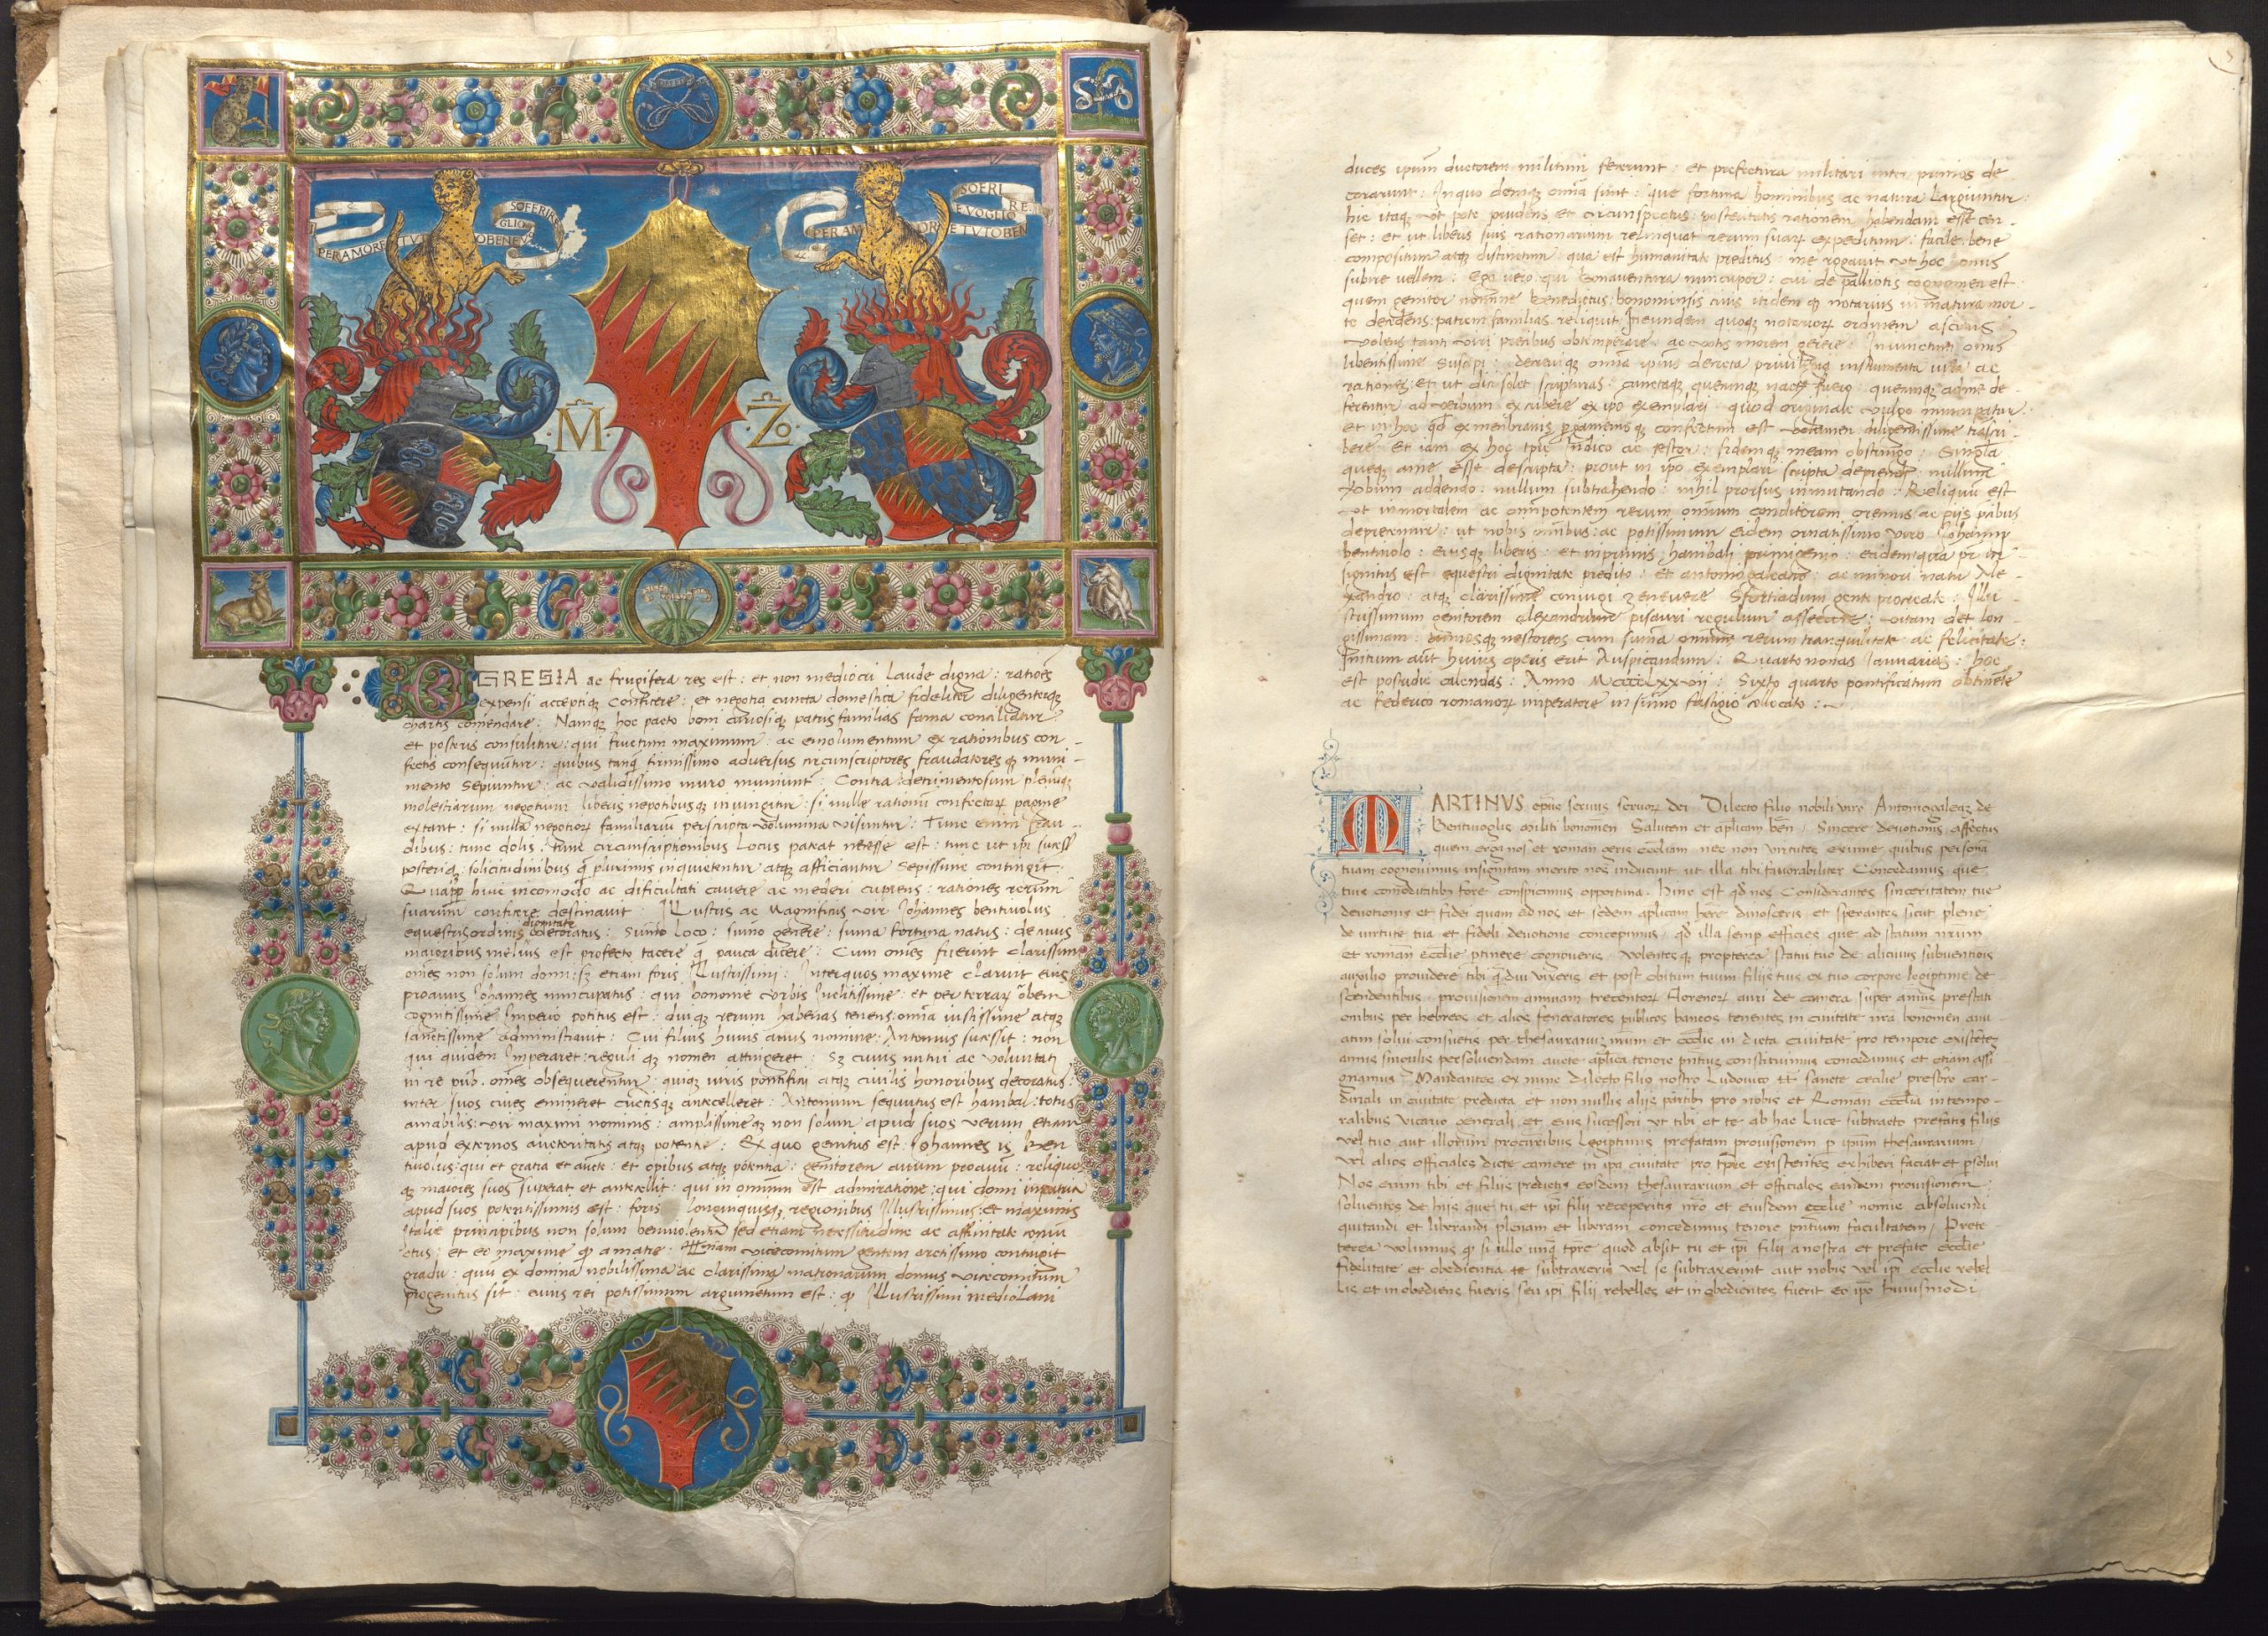 SOFERIRE
GLIO
PER AMORE E TV TOBENE V
SOFERI RE
E VOGLIO
PER AMOR E TV TOBEN
.M. .Zo.
EGREGIA ac frugifera res est : et non mediocri laude digna : rationes
expensi acceptiq conficere : et negotia cuncta domestica fideliter diligenterq
chartis comendare : Namq hoc pacto boni curiosiq patrisfamilias fama conciliatur
et posteris consulitur : qui fructum maximum : ac emolumentum ex rationibus con-
fectis consequuntur : quibus tanq firmissimo adversus circunscriptores fraudatores q muni-
mento sepiuntur : ac validissimo muro muniunt : Contra detrimentosum plenuq
molestiarum negotium liberis nepotibusq iniungitur : si nulle rationum confectarum pagine
extant : si nulla negotiorum familiarium perscripta volumina visuntur : Tunc enim frau-
dibus : tunc dolis : tunc circunscriptionibus locus pateat necesse est : tunc ut ipsi
posteriq solicitudinibus q plurimis inquietentur atq afficiantur sepissime contingit :
Quapp huic incomodo ac dificultati cavere ac mederi cupiens : rationes rerum
suarum conficere destinavit Illustris ac Magnificus vir Johannes bentivolus
dignitate
equestris ordinis decoratus : Sumo loco : sumo genere : suma fortuna natus : de cuius
maioribus melius est profecto tacere q pauca dicere : Cum omes fuerint clarissimi
omes non solum domi : sz etiam foris Illustrissimi : Inter quos maxime claruit eius
proavus Johannes nuncupatus : qui bononie urbis Inclitissime : et per terrarum orbem
cognitissime Imperio potitus est : diuq rerum habenas tenens omia iustissime atq
sanctissime administravit : Cui filius huius avus nomine Antonius sucessit : non
qui quidem Imperaret : reguli q nomen attingeret : Sz cuius nutui ac voluntati
in re pub. omes obsequerentur : quiq viris pontificii atq civilis honoribus decoratus :
inter suos cives emineret cunctisq antecelleret : Antonium sequutus est hanibal : totus
amabilis : vir maximi nominis : amplissime q non solum apud suos verum etiam
apud externos auctoritatis atq potentie : Ex quo genitus est Johannes is ben
tivolus : qui et gratia et aucte : et opibus atq potentia : genitorem avum proavum : reliquos
q maiores suos superat et antecellit : qui in omnium est admiratione : qui domi in patria
apud suos potentissimus est : foris longinquisq regionibus Illustrissimus : et maximis
Italie principibus non solum benivolentia sed etiam necessitudine ac affinitate coniun
ctus : et eo maxime q amate : viccomitum gentem arctissimo contingit
gradu : quu ex domina nobilissima ac clarissima matronarum domus vicecomitum
progenitus sit : cuius rei potissimum argumetum est : q Illustrissimi mediolani
duces ipsum ductorem militum fecerunt : et prefectura militari inter primos de
corarunt : In quo deniq omia sunt : que fortuna hominibus ac natura largiuntur :
hic itaq ut pote prudens et circunspectus : posteritatis rationem habendam esse cen-
set : et ut liberis suis rationarium relinquat rerum suarum expeditum : facile : bene
compositum atq distinctum : qua est humanitate preditus : me rogavit ut hoc onus
subire vellem : Ego vero qui bonaventura nuncupor : cui de palliotis cognomen est :
quem genitor nomine benedictus : bononiensis civis itidem q notarius in matura mor-
te decedens : patrem familias reliquit In eundem quoq notariorum ordinem ascitus
volens tanti viri precibus obtemperare : ac votis morem gerere : Iniunctum onus
libentissime suscepi : decrevique omia ipsius decreta privilegia instrumenta iura ac
rationes : et ut dici solet scripturas : cunctaq quecunq nactus fuero : quecunq ad me de-
ferentur ad verbum exscribere ex ipso exemplari quod originale vulgo nuncupatur :
et in hoc qd ex membranis pgamenis q confectum est volumen diligentissime trascri-
bere : Et iam ex hoc tpre Iudico ac testor : fidemq meam obstringo : Singla
queq a me esse descripta : prout in ipso exemplari scripta deprendi : nullum
verbum addendo : nullum subtrahendo : nihil prorsus inmutando : Reliquum est
ut inmortalem ac omnipotentem rerum omnium conditorem oremus ac piis pcibus
deprecemur : ut nobis omibus : ac potissimum eidem ornatissimo viro Johanni
bentivolo : eiusq liberis : et inprimis hanibali primigenio : eadem qua pr in-
signitus est equestri dignitate predito : et antoniogaleatio : ac minori natu Ale-
xandro : atq clarissime coniugi Zenevere Sfortiadum gente procreate : Illu-
strissimum genitorem alexandrum pisauri regulum asserente : vitam det lon-
gissimam : annosq nestoreos cum suma omnium rerum tranquilitate ac felicitate :
Initium aut huius operis erit Auspicandum : Quarto nonas Januarias : hoc
est postridie calendas : Anno Mcccclxxvii : Sixto quarto pontificatum obtinente
ac federico romanorum imperatore in sumo fastigio collocato :
MARTINVS epus servus servorum dei Dilecto filio nobili viro Antoniogaleaz de
Bentivoglis militi bononien Salutem et aplicam ben / Sincere devotionis affectus
quem erga nos et roman geris eccliam nec non virtutes eximie quibus personam
tuam cognovimus insignitam merito nos inducunt ut illa tibi favorabiliter Concedamus que
tuis comoditatibus fore conspicimus opportuna. Hinc est qd nos Considerantes sinceritatem tue
devotionis et fidei quam ad nos et sedem aplicam here dinosceris et sperantes sicut plene
de virtute tua et fideli devotione concepimus qd illa semp efficies que ad statum nrum
et roman ecclie ptinere cognoveris / volentes q propterea statui tuo de alicuius subventionis
auxilio providere tibi q diu vixeris et post obitum tuum filiis tuis ex tuo corpore legiptime de
scendentibus provisionem annuam trecentorum florenorum auri de camera super annuis prestati
onibus per hebreos et alios feneratores publicos bancos tenentes in civitate nra bononien anu
atim solvi consuetis per thesaurarium nrum et ecclie in dicta civitate pro tempore existente
annis singulis persolvendam aucte aplica tenore pntium constituimus concedimus et etiam assi
gnamus / Mandantes ex nunc dilecto filio nostro Ludovico tt sancte cecilie presbro car-
dinali in civitate predicta et non nullis aliis partibus pro nobis et Roman ecclia in tempo-
ralibus vicario generali et eius sucessori ut tibi et te ab hac luce subtracto prefatis filiis
vel tuo aut illorum procuribus legiptimis prefatam provisionem p ipsum thesaurarium
vel alios officiales dicte camere in ipa civitate pro tpre existentes exhiberi faciat et psolvi
Nos enim tibi et filiis predictis eosdem thesaurarium et officiales eandem provisionem
solventes de hiis que tu et ipi filii receperitis nro et eiusdem ecclie nomine absolvendi
quitandi et liberandi plenam et liberam concedimus tenore pntium facultatem / Prete
terea volumus q si ullo unq tpre quod absit tu et ipi filii a nostra et prefate ecclie
fidelitate et obedientia te subtraxeris vel se subtraxerint aut nobis vel ipi ecclie rebel
lis et inobediens fueris seu ipi filii rebelles et inobedientes fuerit eo ipo huiusmodi